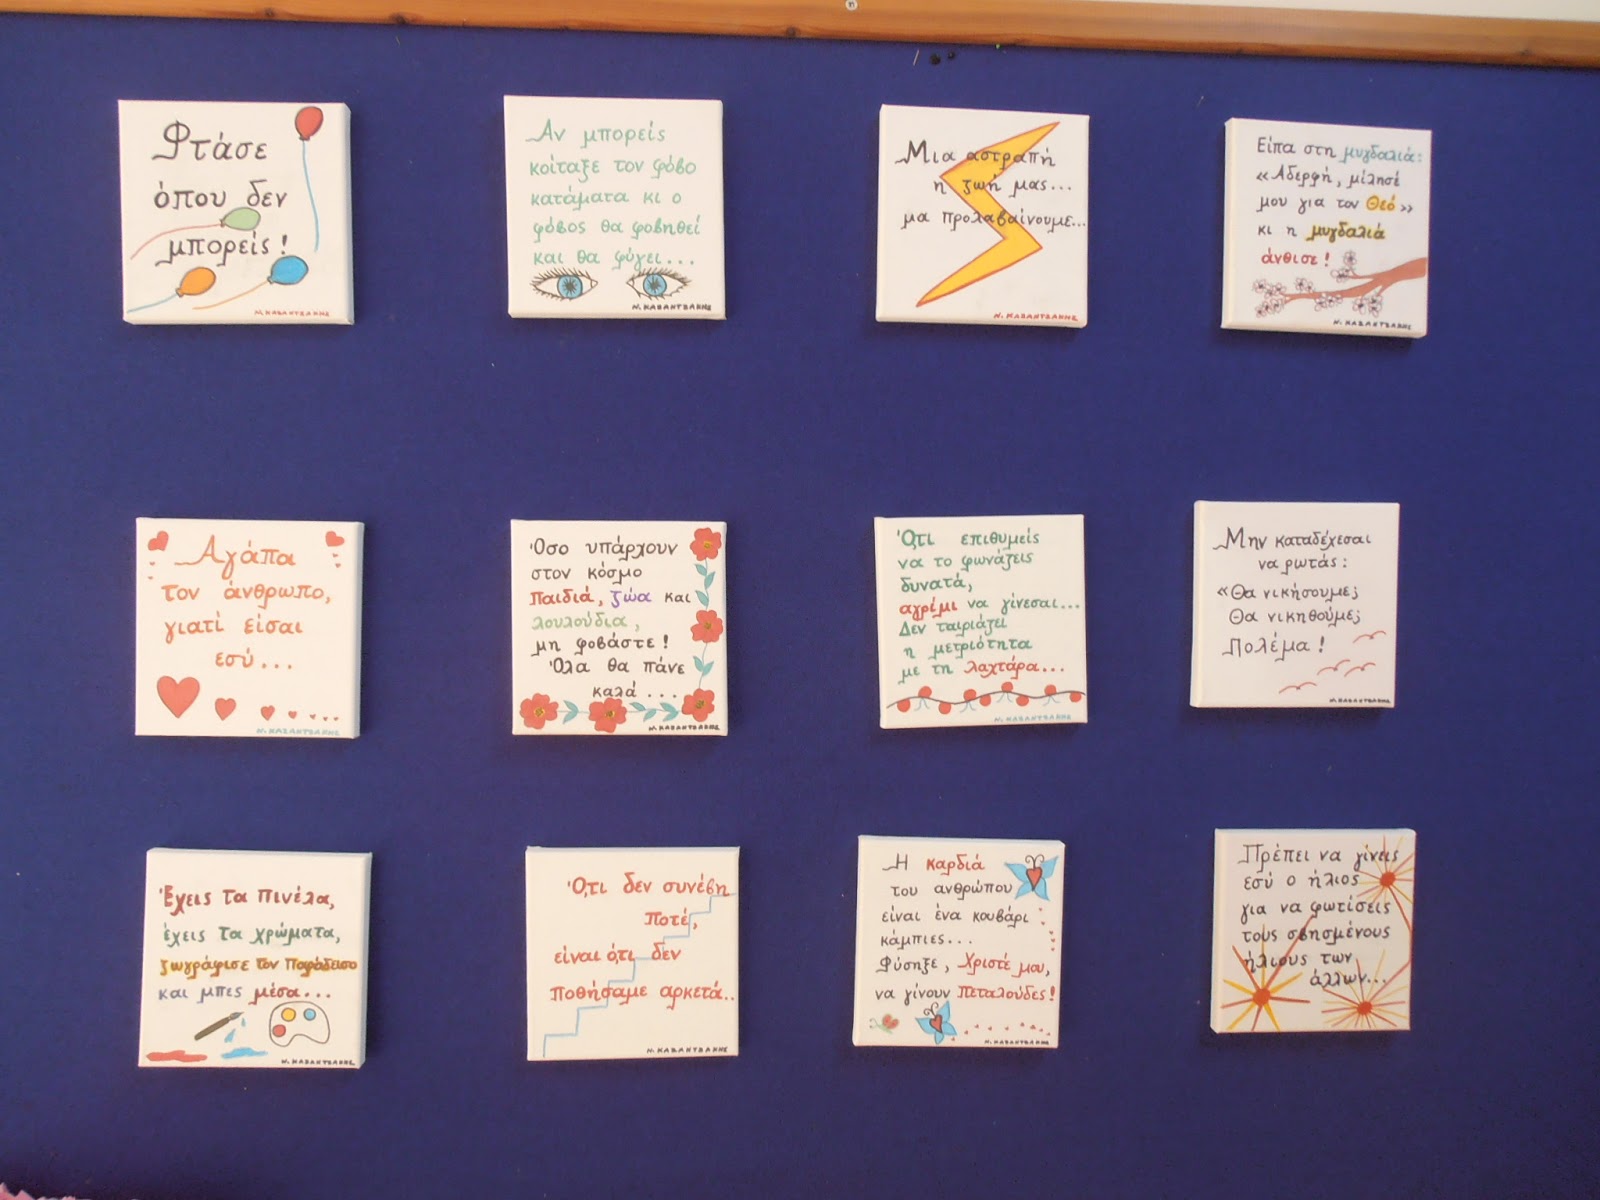 Φτάσε
όπου δεν
μπορείς!
Ν. ΚΑΖΑΝΤΖΑΚΗΣ
Αν μπορείς
κοίταξε τον φόβο
κατάματα κι ο
φόβος θα φοβηθεί
και θα φύγει...
Ν. ΚΑΖΑΝΤΖΑΚΗΣ
Μια αστραπή
η ζωή μας...
μα προλαβαίνουμε...
Ν. ΚΑΖΑΝΤΖΑΚΗΣ
Είπα στη μυγδαλιά:
«Αδερφή, μίλησέ
μου για τον Θεό»
κι η μυγδαλιά
άνθισε!
Ν. ΚΑΖΑΝΤΖΑΚΗΣ
Αγάπα
τον άνθρωπο,
γιατί είσαι
εσύ...
Ν. ΚΑΖΑΝΤΖΑΚΗΣ
Όσο υπάρχουν
στον κόσμο
παιδιά, ζώα και
λουλούδια,
μη φοβάστε!
Όλα θα πάνε
καλά...
Ν. ΚΑΖΑΝΤΖΑΚΗΣ
Ό,τι επιθυμείς
να το φωνάζεις
δυνατά,
αγρίμι να γίνεσαι...
Δεν ταιριάζει
η μετριότητα
με τη λαχτάρα...
Ν. ΚΑΖΑΝΤΖΑΚΗΣ
Μην καταδέχεσαι
να ρωτάς:
«Θα νικήσουμε;
Θα νικηθούμε;
Πολέμα!
Ν. ΚΑΖΑΝΤΖΑΚΗΣ
Έχεις τα πινέλα,
έχεις τα χρώματα,
ζωγράφισε τον Παράδεισο
και μπες μέσα...
Ν. ΚΑΖΑΝΤΖΑΚΗΣ
Ό,τι δεν συνέβη
ποτέ,
είναι ό,τι δεν
ποθήσαμε αρκετά..
Ν. ΚΑΖΑΝΤΖΑΚΗΣ
Η καρδιά
του ανθρώπου
είναι ένα κουβάρι
κάμπιες...
Φύσηξε, Χριστέ μου,
να γίνουν πεταλούδες!
Ν. ΚΑΖΑΝΤΖΑΚΗΣ
Πρέπει να γίνεις
εσύ ο ήλιος
για να φωτίσεις
τους σβησμένους
ήλιους των
άλλων...